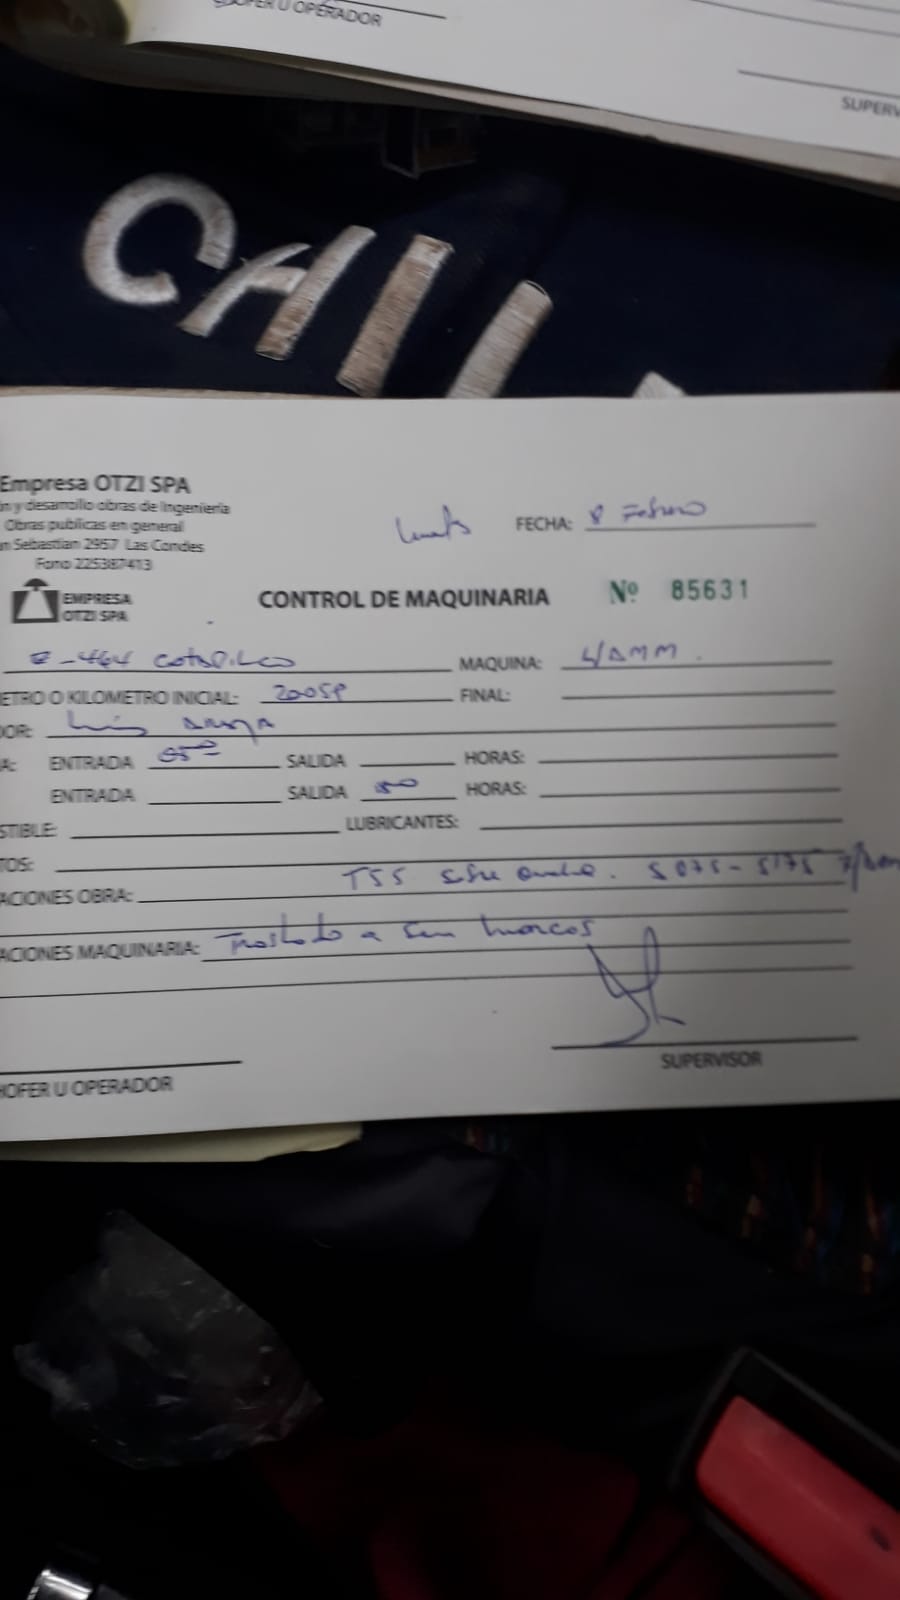 CHOFER U OPERADOR
SUPERV
CHIL
Empresa OTZI SPA
n y desarrollo obras de Ingeniería
Obras publicas en general
n Sebastian 2957 Las Condes
Fono 225387413
EMPRESA
OTZI SPA
FECHA: 8 Febrero
CONTROL DE MAQUINARIA Nº 85631
E-464 MAQUINA:
ETRO O KILOMETRO INICIAL: FINAL:
DOR: Luis Araya
A: ENTRADA SALIDA HORAS:
ENTRADA SALIDA HORAS:
STIBLE: LUBRICANTES:
TOS:
ACIONES OBRA: TSS 5075 - 5175
ACIONES MAQUINARIA: Traslado a San Marcos
HOFER U OPERADOR
SUPERVISOR